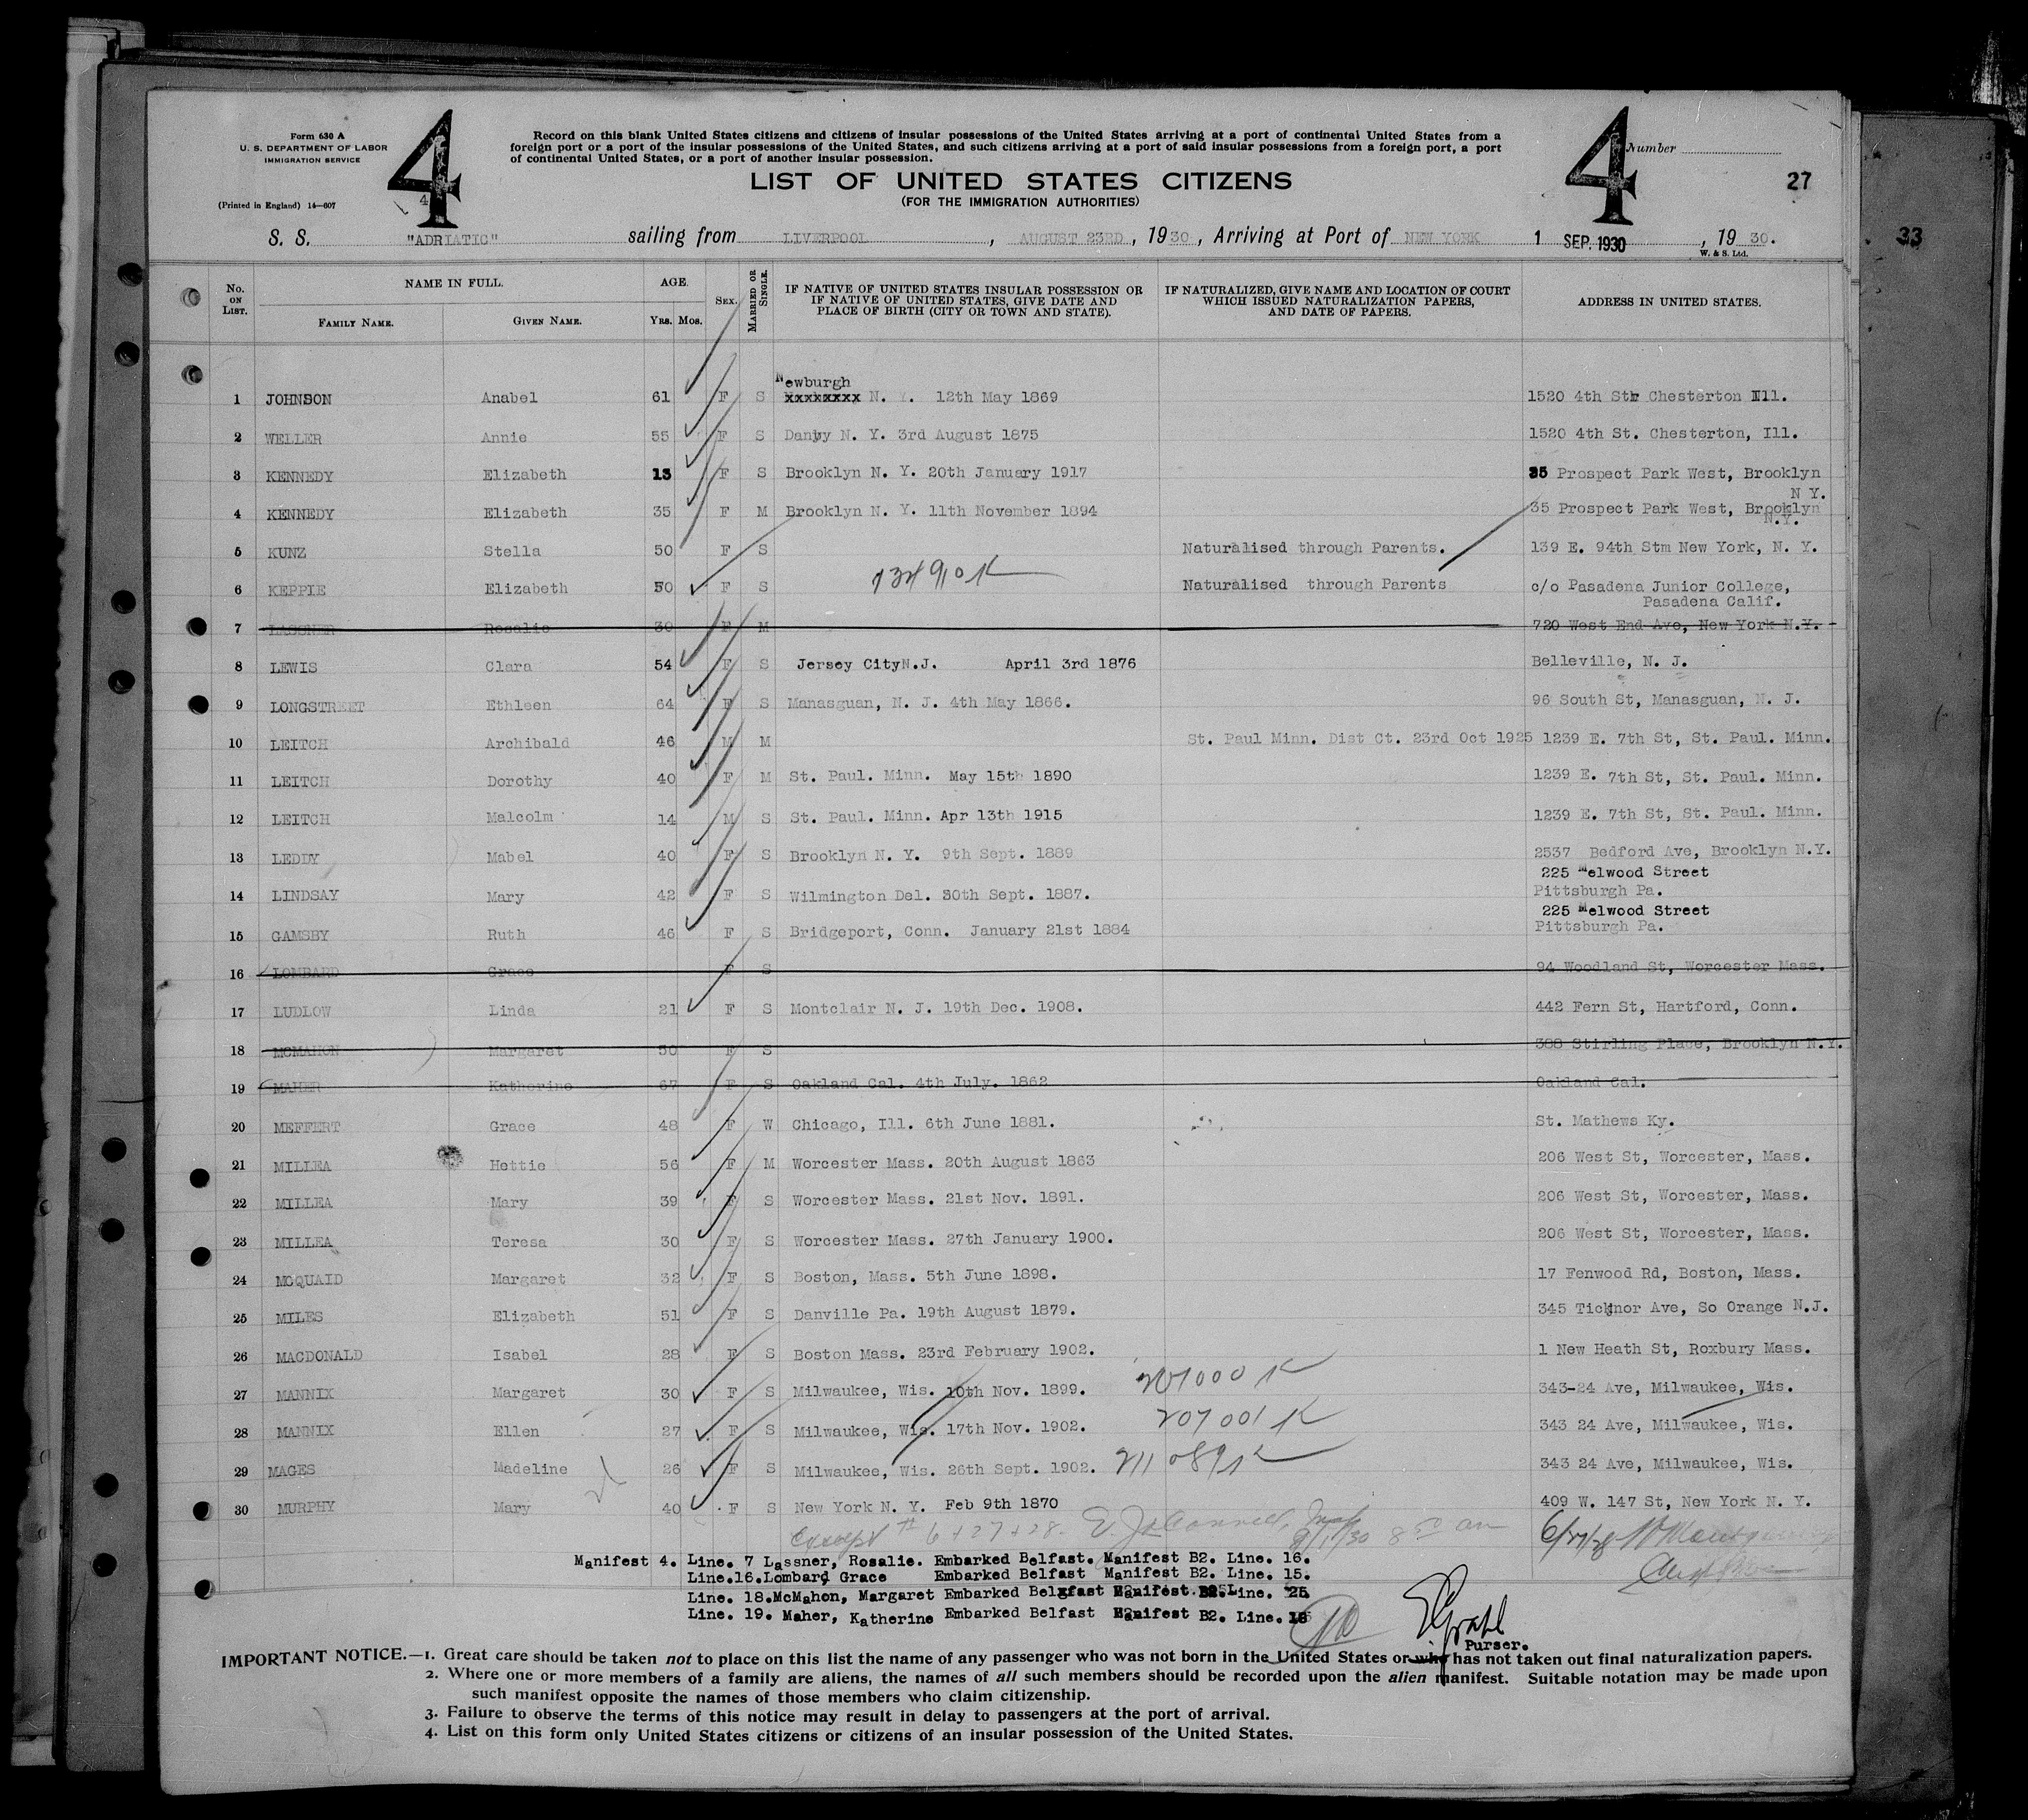 Form 630 A
U. S. DEPARTMENT OF LABOR
IMMIGRATION SERVICE
(Printed in England) 14—607
4
4
Record on this blank United States citizens and citizens of insular possessions of the United States arriving at a port of continental United States from a
foreign port or a port of the insular possessions of the United States, and such citizens arriving at a port of said insular possessions from a foreign port, a port
of continental United States, or a port of another insular possession.
4
Number
27
33
LIST OF UNITED STATES CITIZENS
(FOR THE IMMIGRATION AUTHORITIES)
S. S. "ADRIATIC" sailing from LIVERPOOL, AUGUST 23RD, 1930, Arriving at Port of NEW YORK 1 SEP. 1930, 1930.
W. & S. Ltd.
No. ON LIST. NAME IN FULL. FAMILY NAME. GIVEN NAME. AGE. YRS. MOS. SEX. MARRIED OR SINGLE. IF NATIVE OF UNITED STATES INSULAR POSSESSION OR IF NATIVE OF UNITED STATES, GIVE DATE AND PLACE OF BIRTH (CITY OR TOWN AND STATE). IF NATURALIZED, GIVE NAME AND LOCATION OF COURT WHICH ISSUED NATURALIZATION PAPERS, AND DATE OF PAPERS. ADDRESS IN UNITED STATES.
Newburgh
1 JOHNSON Anabel 61 F S xxxxxxxx N. Y. 12th May 1869 1520 4th Str Chesterton Ill.
2 WELLER Annie 55 F S Danby N. Y. 3rd August 1875 1520 4th St. Chesterton, Ill.
3 KENNEDY Elizabeth 13 F S Brooklyn N. Y. 20th January 1917 35 Prospect Park West, Brooklyn
N Y.
4 KENNEDY Elizabeth 35 F M Brooklyn N. Y. 11th November 1894 35 Prospect Park West, Brooklyn
N.Y.
5 KUNZ Stella 50 F S Naturalised through Parents. 139 E. 94th Stm New York, N. Y.
6 KEPPIE Elizabeth 50 F S 134910 K Naturalised through Parents c/o Pasadena Junior College,
Pasadena Calif.
7 LASSNER Rosalie 30 F M 720 West End Ave, New York N.Y.
8 LEWIS Clara 54 F S Jersey City N.J. April 3rd 1876 Belleville, N. J.
9 LONGSTREET Ethleen 64 F S Manasguan, N. J. 4th May 1866. 96 South St, Manasguan, N. J.
10 LEITCH Archibald 46 M M St. Paul Minn. Dist Ct. 23rd Oct 1925 1239 E. 7th St, St. Paul. Minn.
11 LEITCH Dorothy 40 F M St. Paul. Minn. May 15th 1890 1239 E. 7th St, St. Paul. Minn.
12 LEITCH Malcolm 14 M S St. Paul. Minn. Apr 13th 1915 1239 E. 7th St, St. Paul. Minn.
13 LEDDY Mabel 40 F S Brooklyn N. Y. 9th Sept. 1889 2537 Bedford Ave, Brooklyn N.Y.
225 Melwood Street
14 LINDSAY Mary 42 F S Wilmington Del. 30th Sept. 1887. Pittsburgh Pa.
225 Melwood Street
15 GAMSBY Ruth 46 F S Bridgeport, Conn. January 21st 1884 Pittsburgh Pa.
16 LOMBARD Grace F S 94 Woodland St, Worcester Mass.
17 LUDLOW Linda 21 F S Montclair N. J. 19th Dec. 1908. 442 Fern St, Hartford, Conn.
18 MCMAHON Margaret 50 F S 388 Stirling Place, Brooklyn N.Y.
19 MAHER Katherine 67 F S Oakland Cal. 4th July. 1862 Oakland Cal.
20 MEFFERT Grace 48 F W Chicago, Ill. 6th June 1881. St. Mathews Ky.
21 MILLEA Hettie 56 F M Worcester Mass. 20th August 1863 206 West St, Worcester, Mass.
22 MILLEA Mary 39 F S Worcester Mass. 21st Nov. 1891. 206 West St, Worcester, Mass.
23 MILLEA Teresa 30 F S Worcester Mass. 27th January 1900. 206 West St, Worcester, Mass.
24 MCQUAID Margaret 32 F S Boston, Mass. 5th June 1898. 17 Fenwood Rd, Boston, Mass.
25 MILES Elizabeth 51 F S Danville Pa. 19th August 1879. 345 Ticknor Ave, So Orange N.J.
26 MACDONALD Isabel 28 F S Boston Mass. 23rd February 1902. 1 New Heath St, Roxbury Mass.
27 MANNIX Margaret 30 F S Milwaukee, Wis. 10th Nov. 1899. 207000 K 343-24 Ave, Milwaukee, Wis.
28 MANNIX Ellen 27 F S Milwaukee, Wis. 17th Nov. 1902. 207001 K 343 24 Ave, Milwaukee, Wis.
29 MAGES Madeline 26 F S Milwaukee, Wis. 26th Sept. 1902. 211089 K 343 24 Ave, Milwaukee, Wis.
30 MURPHY Mary 40 F S New York N. Y. Feb 9th 1870 409 W. 147 St, New York N. Y.
Except # 6 + 27 + 28. 9/1/30 8 50 am
Manifest 4. Line. 7 Lassner, Rosalie. Embarked Belfast. Manifest B2. Line. 16.
Line.16.Lombard Grace Embarked Belfast Manifest B2. Line. 15.
Line. 18.McMahon, Margaret Embarked Belfast Manifest. B2. Line. 25
Line. 19. Maher, Katherine Embarked Belfast Manifest B2. Line.
Purser.
IMPORTANT NOTICE.—1. Great care should be taken not to place on this list the name of any passenger who was not born in the United States or who has not taken out final naturalization papers.
2. Where one or more members of a family are aliens, the names of all such members should be recorded upon the alien manifest. Suitable notation may be made upon
such manifest opposite the names of those members who claim citizenship.
3. Failure to observe the terms of this notice may result in delay to passengers at the port of arrival.
4. List on this form only United States citizens or citizens of an insular possession of the United States.